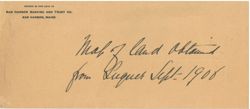 BAR HARBOR BANKING AND TRUST CO.
BAR HARBOR, MAINE
Map of land obtained
from Suguet Sept. 1906